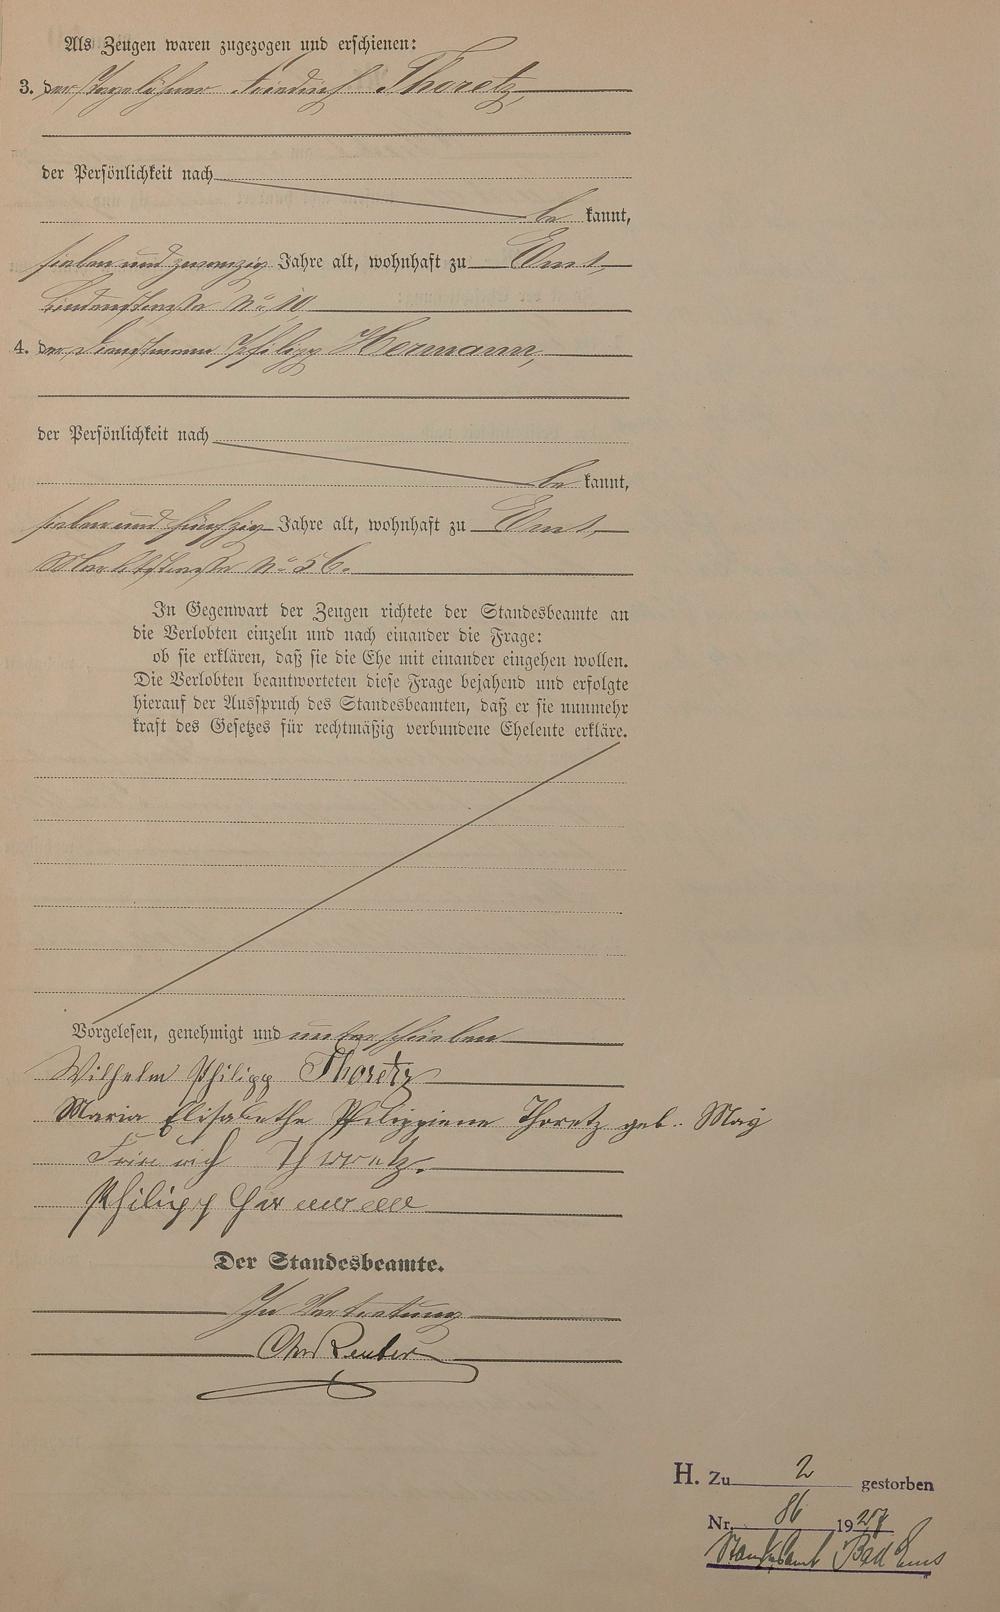 Als Zeugen waren zugezogen und erschienen:
3. der Tagelöhner Friedrich Thoretz,
der Persönlichkeit nach
be kannt,
sieben und zwanzig Jahre alt, wohnhaft zu Ems,
Lindenstraße No 10
4. der Dienstmann Philipp Hermann,
der Persönlichkeit nach
be kannt,
sieben und fünfzig Jahre alt, wohnhaft zu Ems,
Marktstraße No 56.
In Gegenwart der Zeugen richtete der Standesbeamte an
die Verlobten einzeln und nach einander die Frage:
ob sie erklären, daß sie die Ehe mit einander eingehen wollen.
Die Verlobten beantworteten diese Frage bejahend und erfolgte
hierauf der Ausspruch des Standesbeamten, daß er sie nunmehr
kraft des Gesetzes für rechtmäßig verbundene Eheleute erkläre.
Vorgelesen, genehmigt und unterschrieben
Wilhelm Philipp Thoretz
Maria Elisabethe Philippiene Thoretz geb. May
Friedrich Thoretz.
Philipp Hermann
Der Standesbeamte.
In Vertretung
Reuter
H. Zu 2 gestorben
Nr. 86 1927
Standesamt Bad Ems